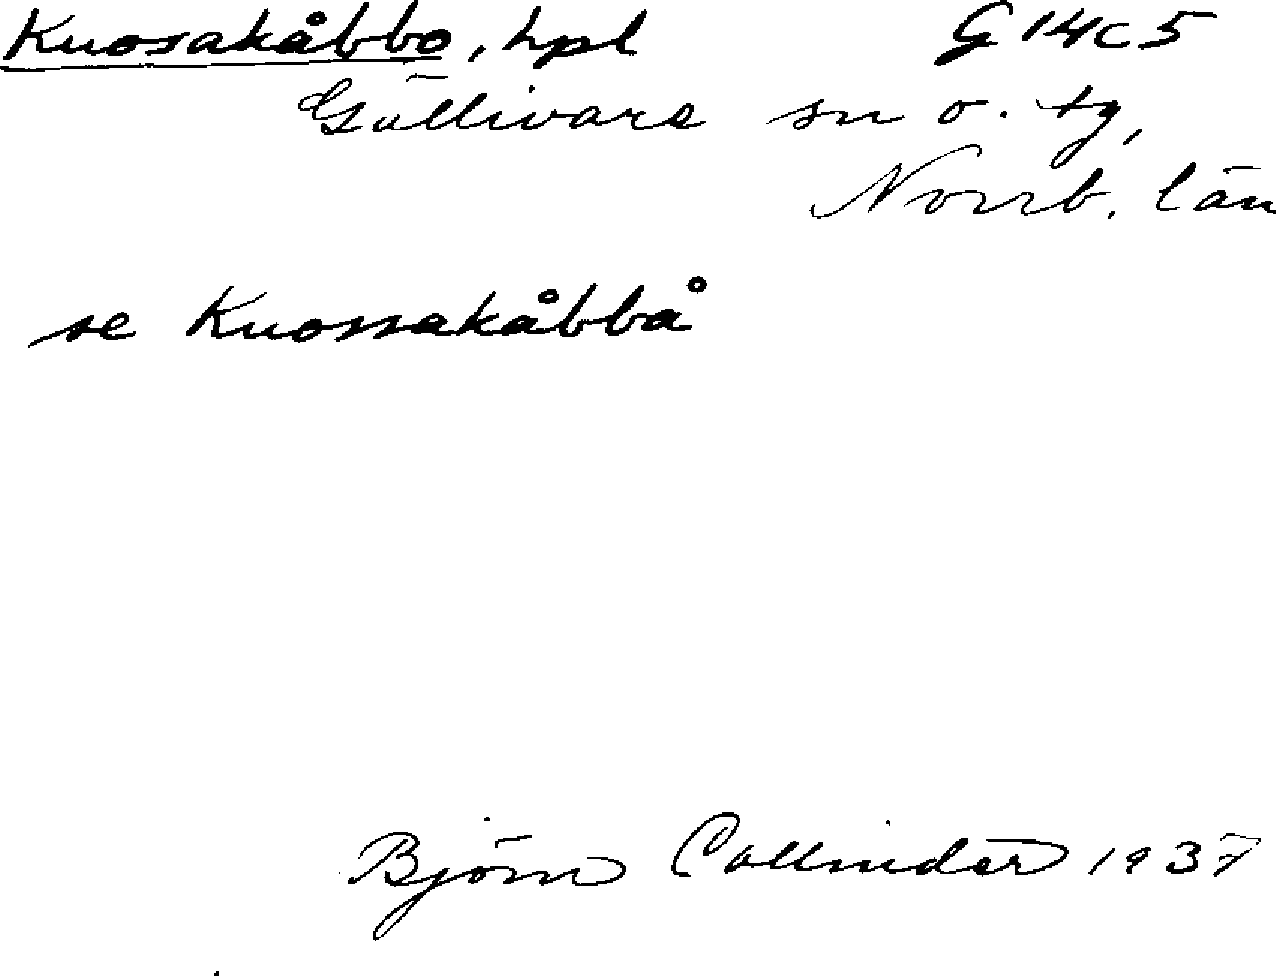 Kuosakåbbo, hpl G 14c 5
Gällivare sn o. tg,
Norrb. län
se Kuossakåbbå
Björn Collinder 1937